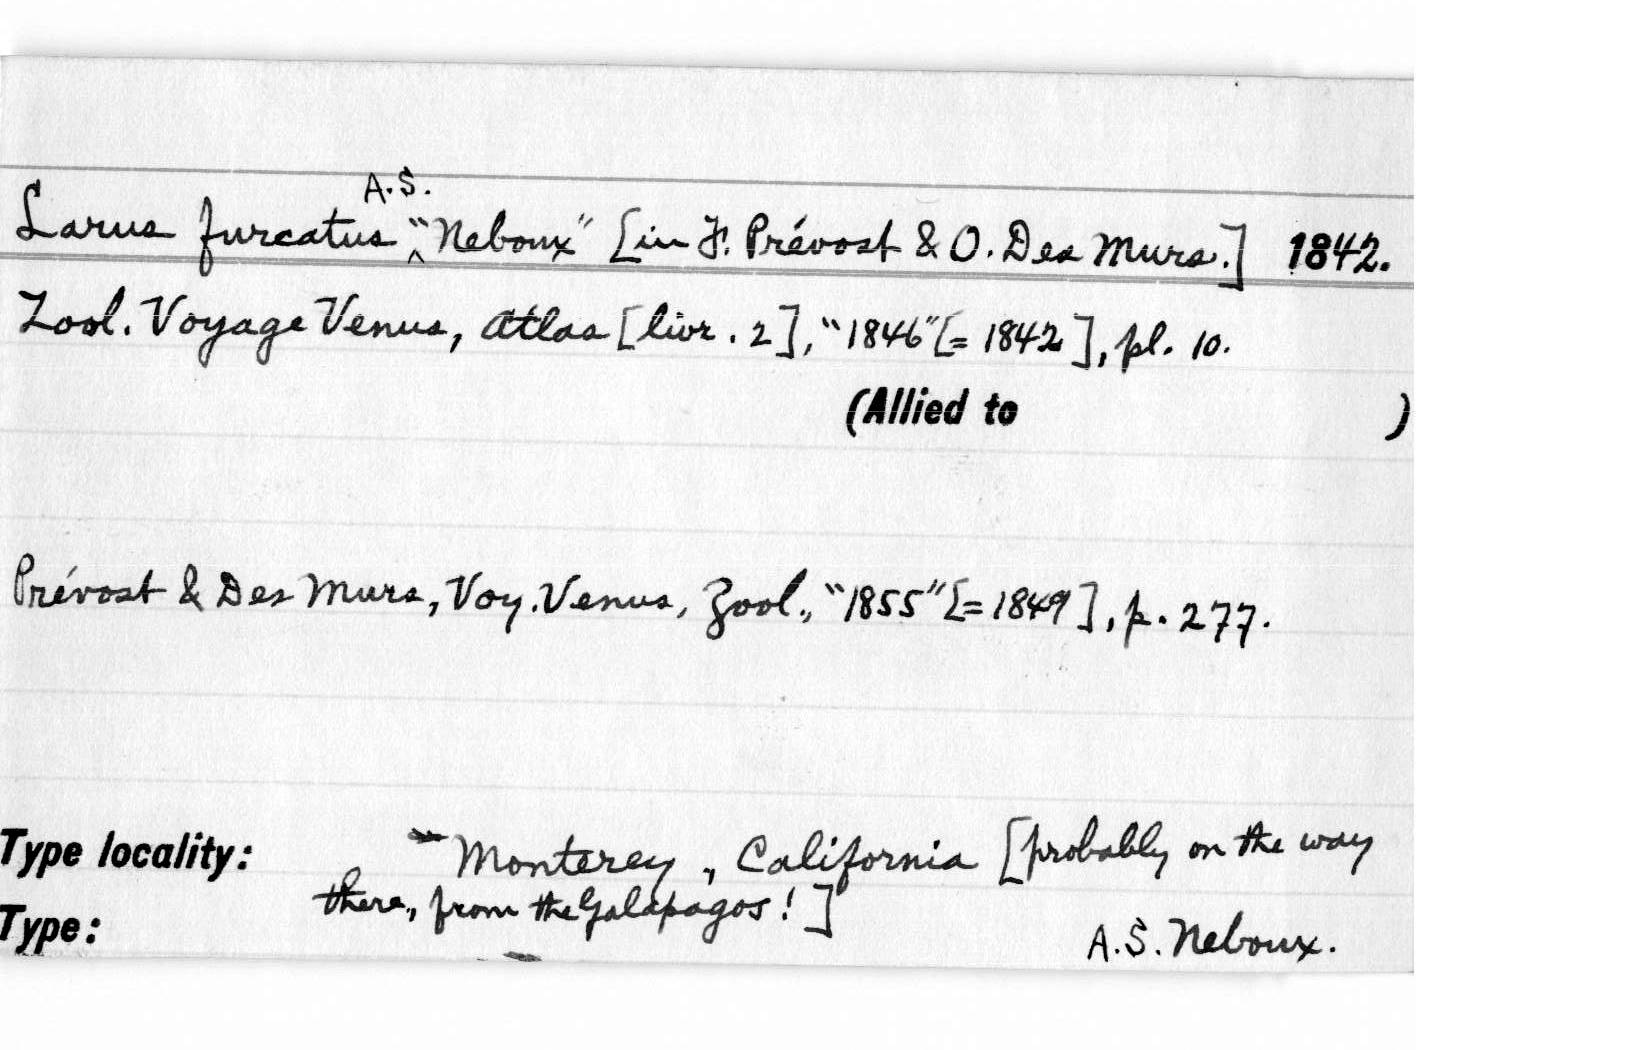 A.S.
Larus furcatus "Neboux" [in F. Prévost & O. Des Murs.] 1842.
Zool. Voyage Venus, Atlas [livr. 2], "1846" [= 1842], pl. 10.
(Allied to )
Prévost & Des Murs, Voy. Venus, Zool., "1855" [= 1849], p. 277.
Type locality: Monterey, California [probably on the way
there, from the Galapagos!]
Type: A.S. Neboux.